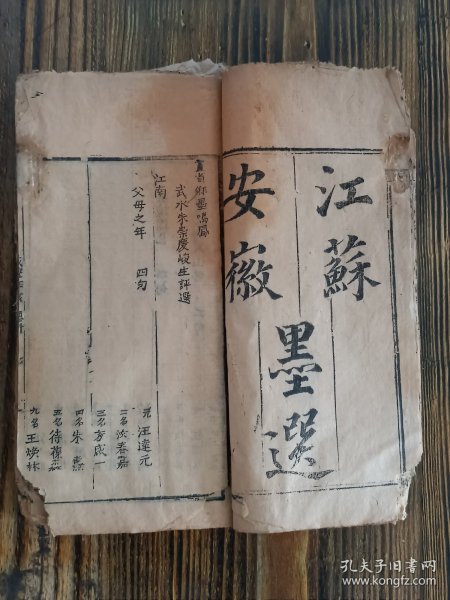 江蘇
安徽
墨選
直省鄉墨鳴鳳
武水宋崇慶峻生評選
江南
父母之年 四句
元 汪達元
三名 方咸一
四名 朱
五名 待葆
九名 王焕林
孔夫子旧书网
www.kongfz.com